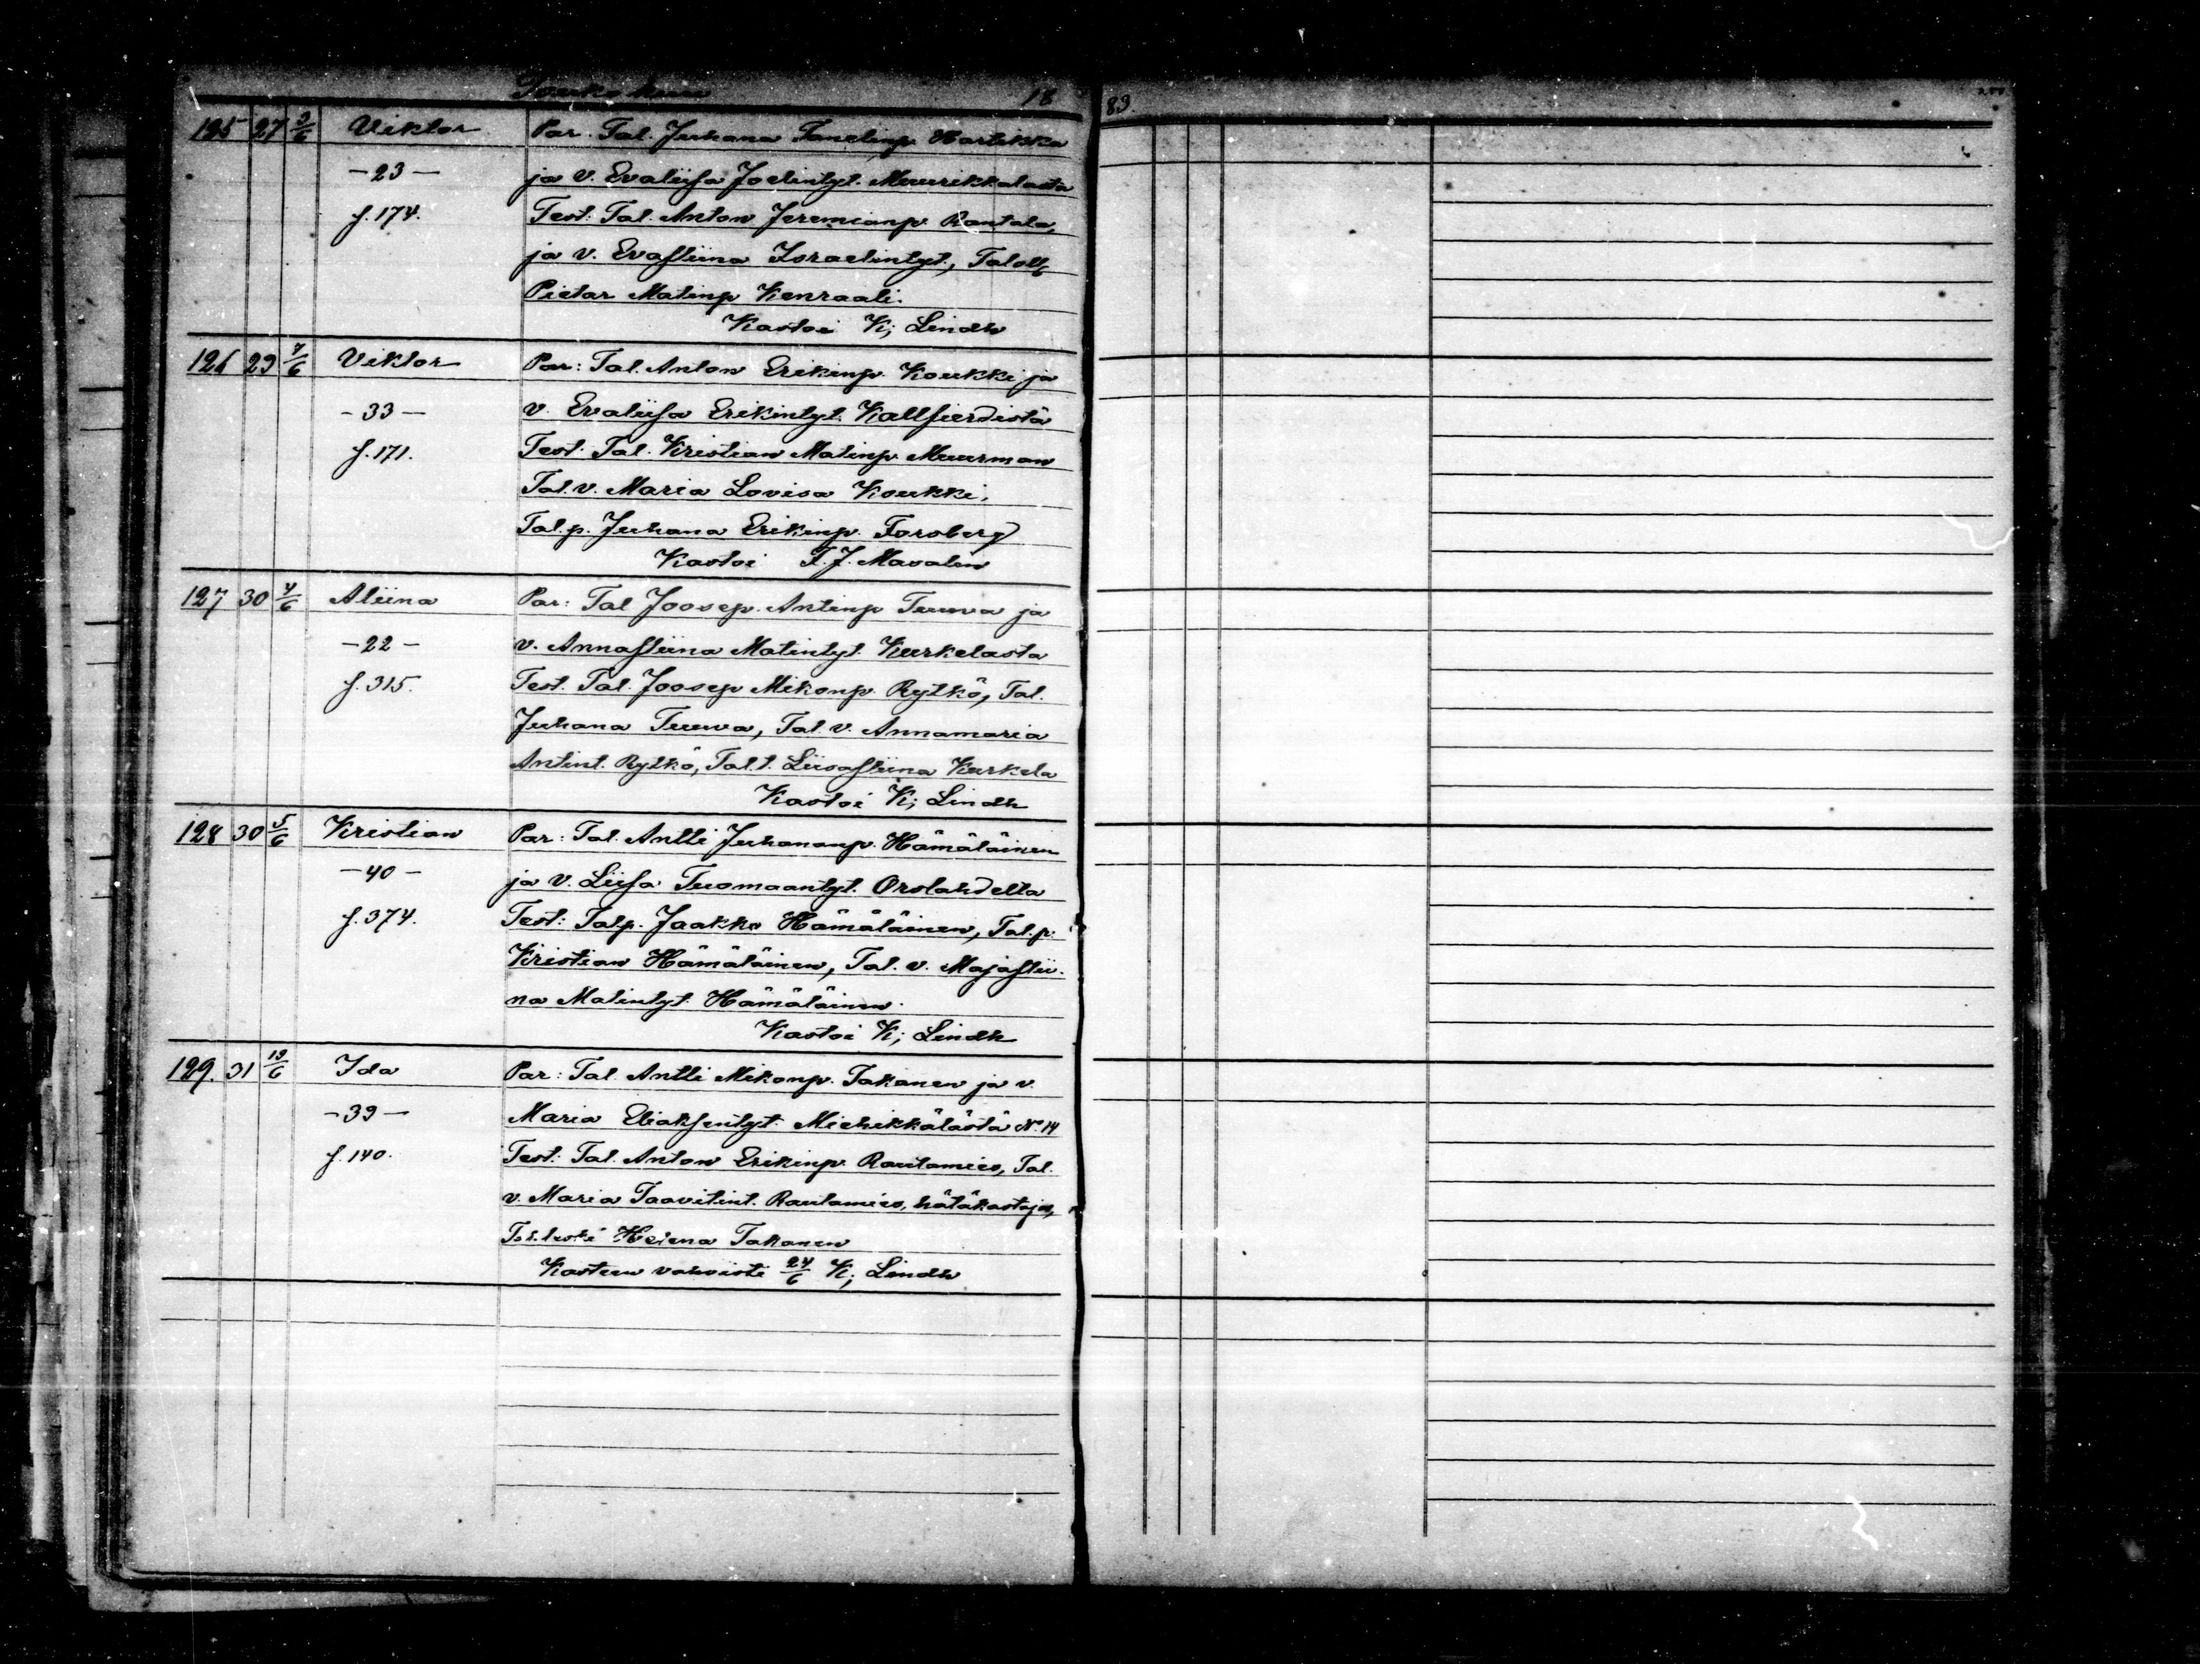 Toukokuu 18 83.
125 27 3/6 Viktor Par. Tal. Juhana Tanelinp. Hartikka
-23- ja v. Evaliisa Joelintyt. Muurikkalasta
f. 174. Test: Tal. Anton Jeremianp. Rantala,
ja v. Evastiina Israelintyt.,
Pietar Matinp Kenraali.
Kastoi K; Lindh
126 29 7/6 Viktor Par: Tal. Anton Erikinp. Koukki ja
-33- v. Evaliisa Erikintyt. Kallfierdistä
f. 171. Test. Tal. Kristian Matinp. Muurman
Tal. v. Maria Lovisa Koukki,
Tal. p. Juhana Erikinp. Forsberg
Kastoi T. J. Masalin
127 30 4/6 Aliina Par: Tal Joosep. Antinp Tuuva ja
-22- v. Annastiina Matintyt. Kurkelasta
f. 315. Test. Tal. Joosep Mikonp. Rytkö, Tal.
Juhana Tuuva, Tal. v. Annamaria
Antint. Rytkö, Tal. t. Liisastiina Kurkela
Kastoi K; Lindh
128 30 5/6 Kristian Par: Tal. Antti Juhananp. Hämäläinen
-40- ja v. Liisa Tuomaantyt. Orslahdelta
f. 374. Test: Talp. Jaakko Hämäläinen, Tal. p.
Kristian Hämäläinen, Tal. v. Majastii-
na Matintyt. Hämäläinen.
Kastoi K; Lindh
129. 31 19/6 Ida Par: Tal. Antti Mikonp. Takanen ja v.
-39- Maria Eliaksentyt. Miehikkälästä N. 14
f. 140. Test: Tal. Anton Erikinp. Rautamies, Tal.
v. Maria Taavitint. Rautamies, hätäkastaja,
Tal. leski Helena Takanen
Kasteen vahvisti 24/6 K; Lindh